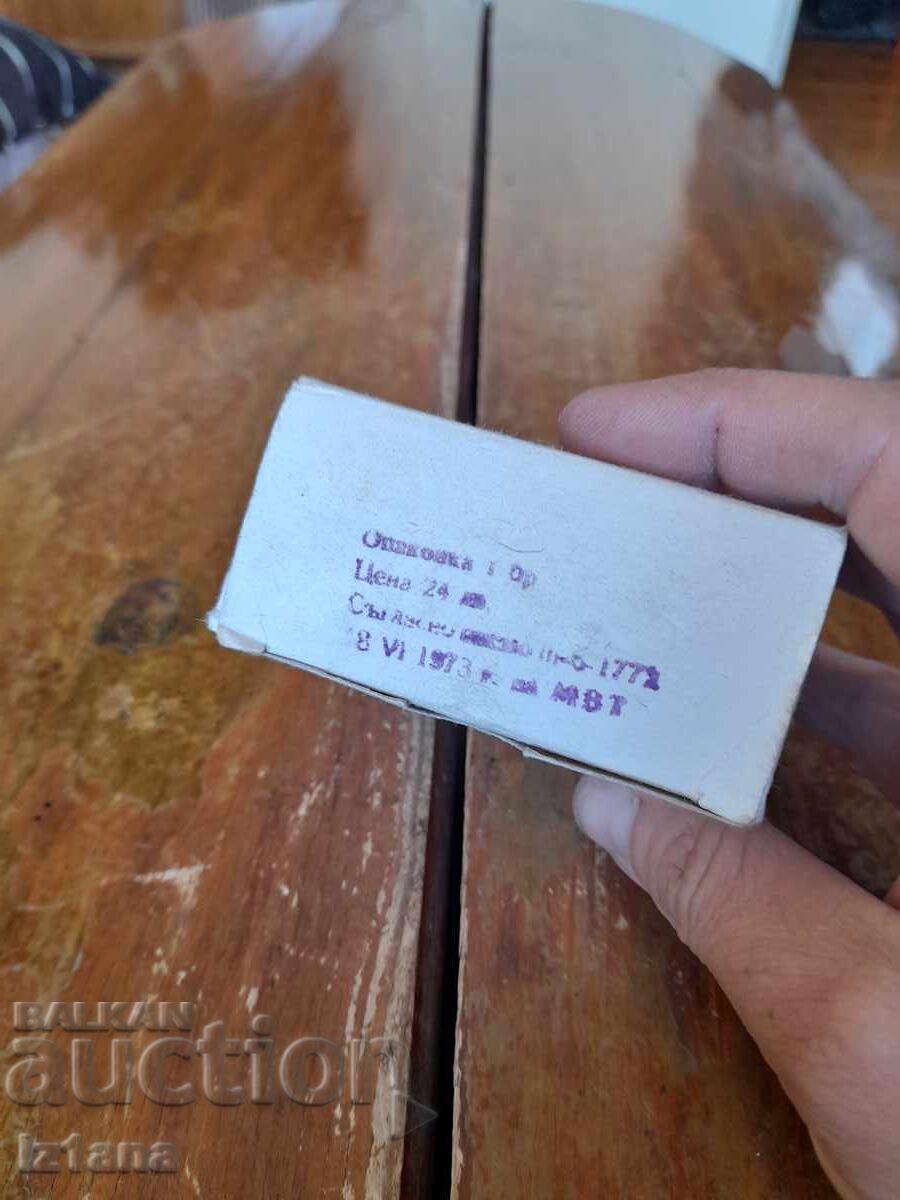 Опаковка 1 бр
Цена 24 лв
Съгласно 1772
8 VI 1973 г. на МВТ
BALKAN
auction
Iz1ana